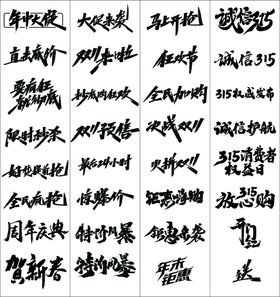 年中大促
大促来袭
马上开抢
诚信315
直击底价
双11来啦
狂欢节
诚信315
要疯狂
就彻底
秒杀狂欢
全民加购
315权威发布
限时秒杀
双11预售
决战双11
诚信护航
好货提前抢
最后24小时
火拼双11
315消费者
权益日
全民疯抢
惊爆价
钜惠嗨购
放心购
周年庆典
特价风暴
钜惠来袭
开门红
贺新春
特价风暴
年末
钜惠
送